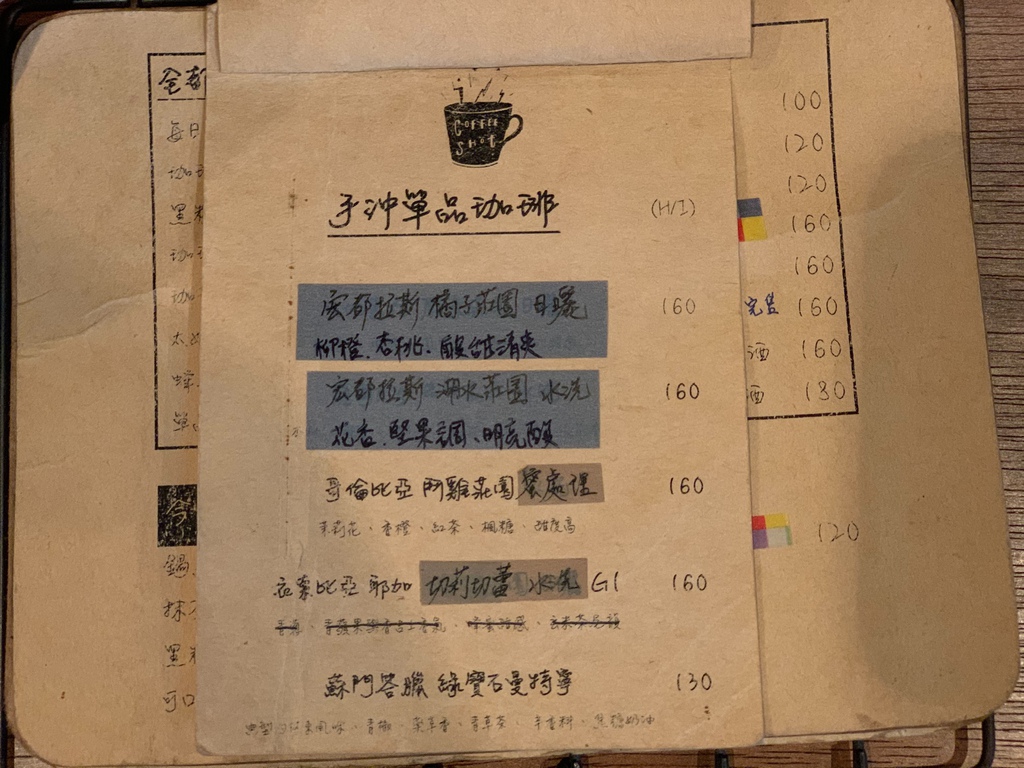 COFFEE
SHOT
手沖單品咖啡 (H/I)
宏都拉斯 橘子莊園 日曬 160
柳橙、杏桃、酸甜清爽
宏都拉斯 湧水莊園 水洗 160
花香、堅果調、明亮酸
哥倫比亞 鬥雞莊園 蜜處理 160
茉莉花、香橙、紅茶、楓糖、甜度高
衣索比亞 耶加 切莉切蕾 水洗 G1 160
蘇門答臘 綠寶石曼特寧 130
青草茶、辛香料、焦糖奶油
全
每日
咖
黑
咖
咖
太
單
100
120
120
160
160
完售 160
酒 160
酒 130
鍋
抹
黑
可口
120